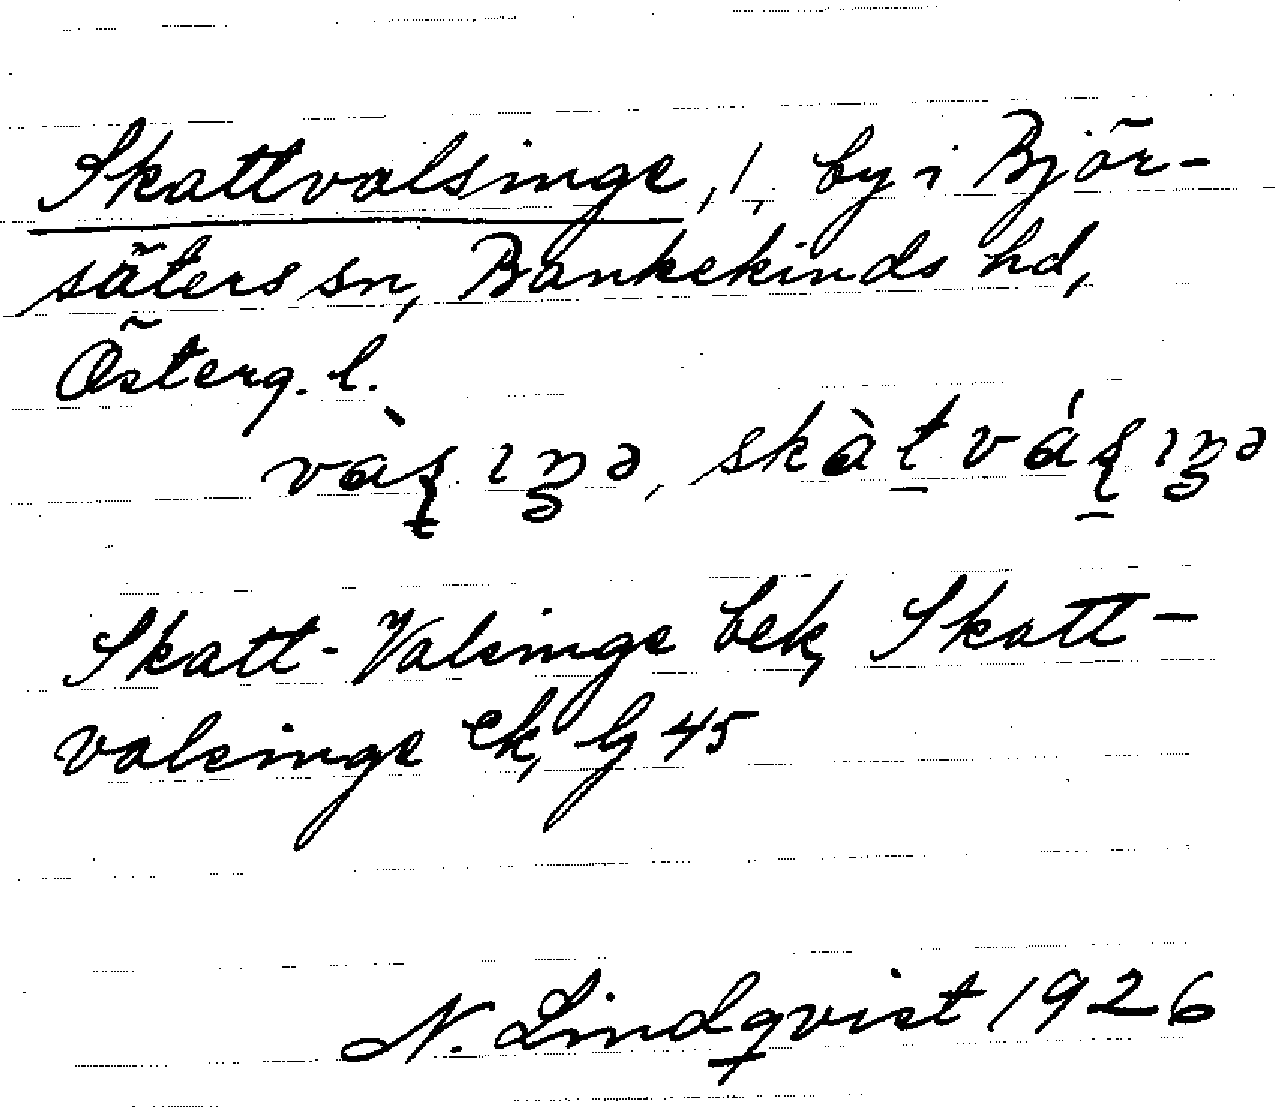 Skattvalsinge, !, by i Björ-
säters sn, Bankekinds hd,
Österg. l.
Skatt-Valsinge bek, Skatt-
valsinge ek, Lg 45
N. Lindqvist 1926